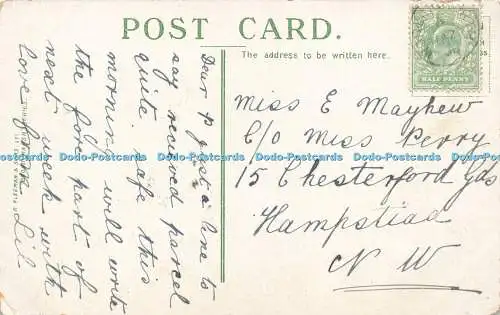 POST CARD.
The address to be written here.
HALF PENNY
Dear P just a line to
say received parcel
quite safe this
morning will write
the fore part of
next week with
love from
Lil
Miss E Mayhew
C/o Miss Perry
15 Chesterford Gds
Hampstead
N W
Dodo-Postcards Dodo-Postcards Dodo-Postcards Dodo-Postcards Dodo-Postcards